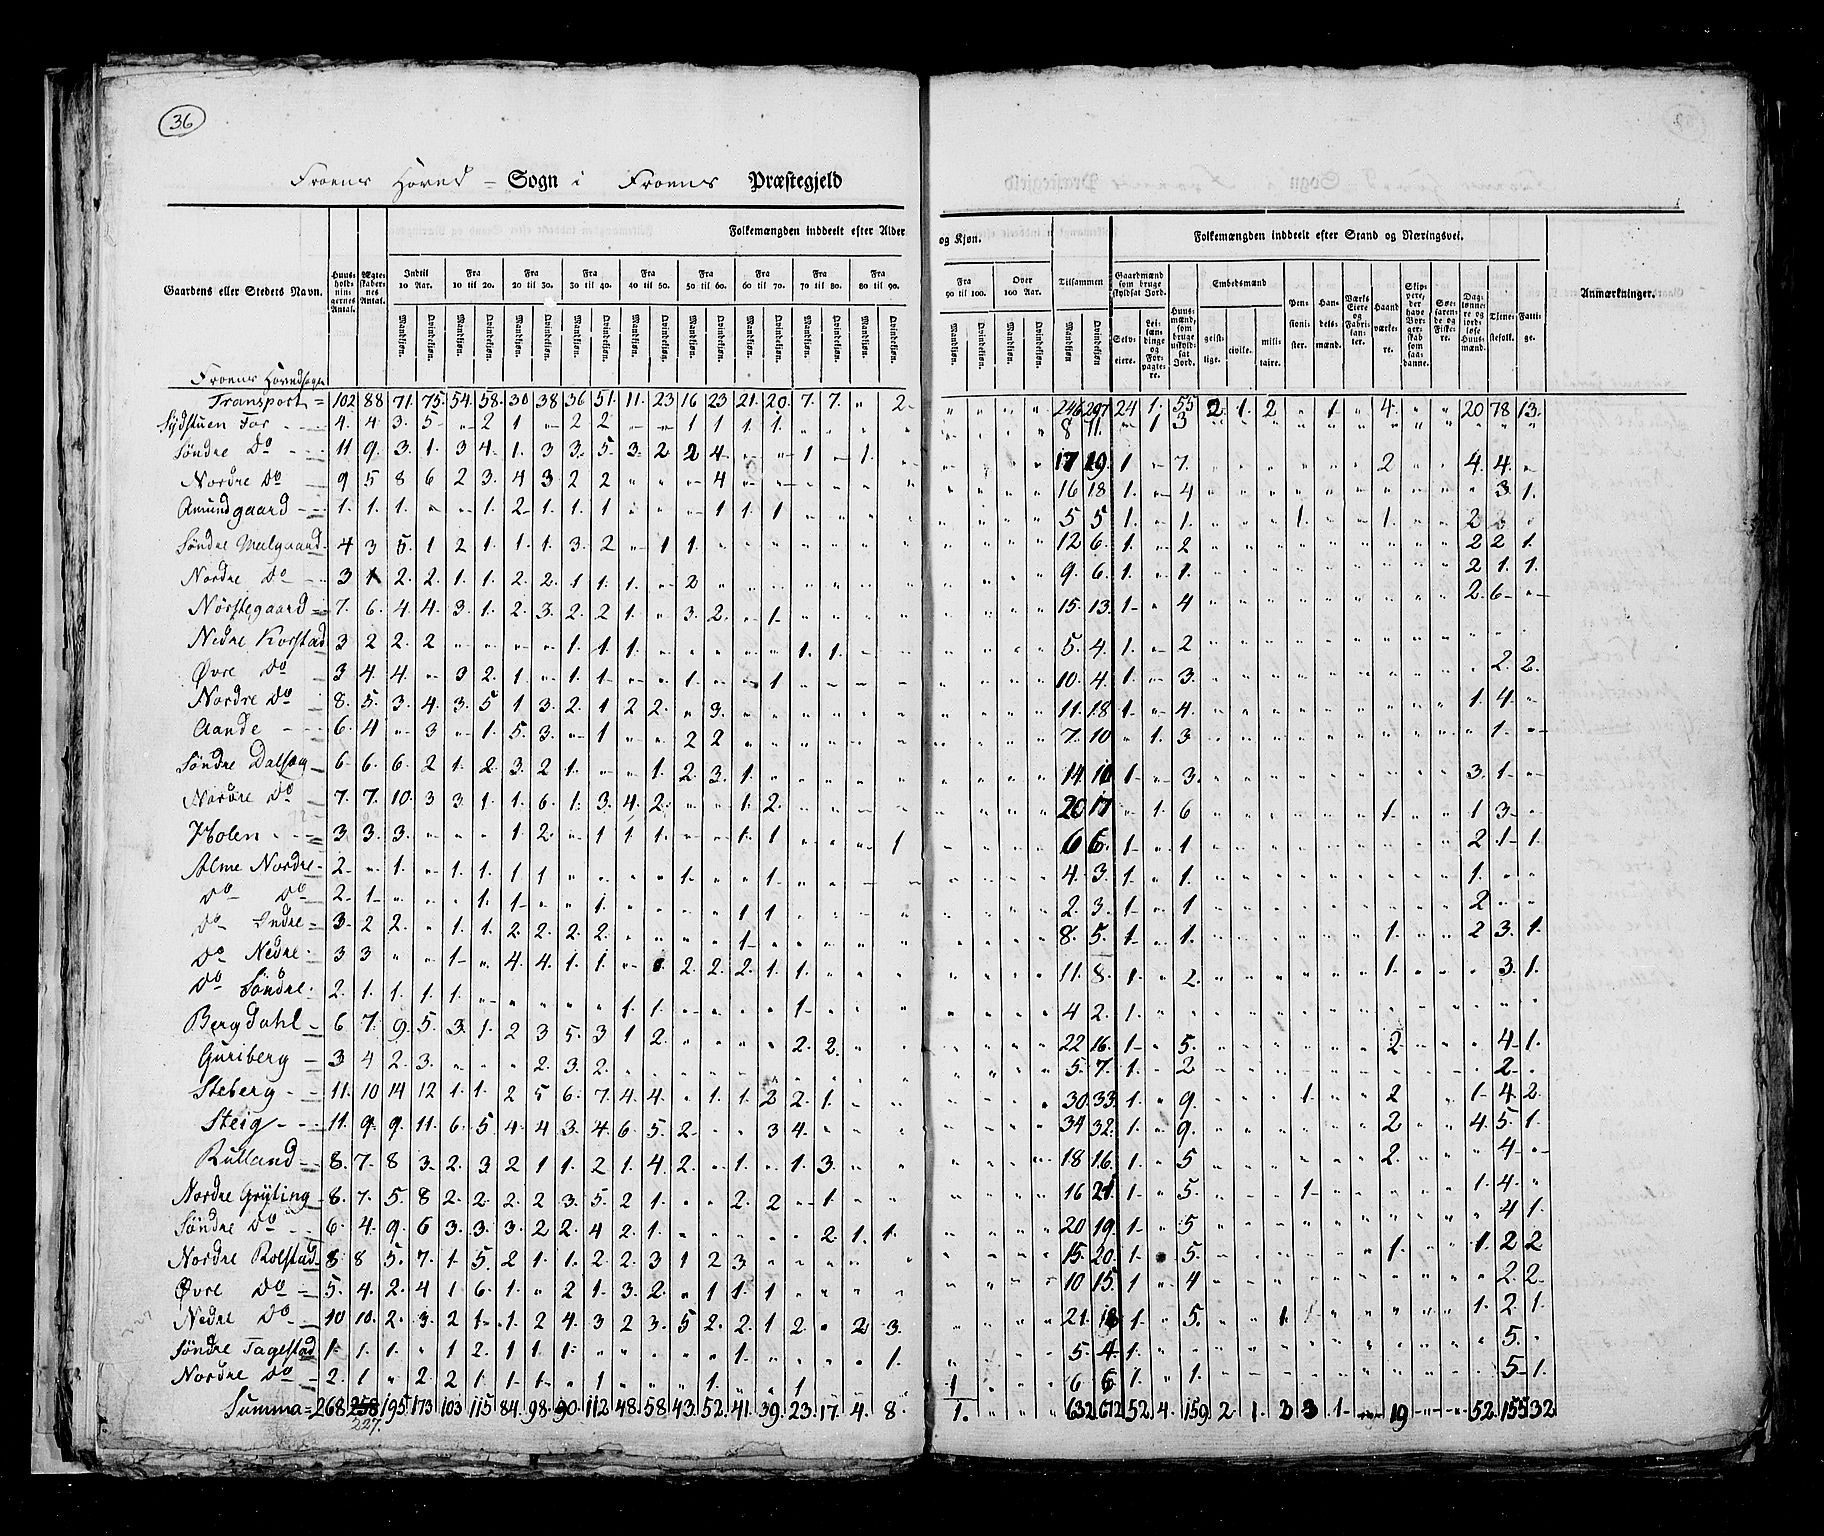 36
Froens Hoved = Sogn i Froens Præstegjeld
Folkemængden inddeelt efter Alder og Kjøn. Folkemængden inddeelt efter Stand og Næringsvei.
Gaardens eller Stedets Navn. Huusholdningernes Antal. Ægteskabernes Antal. Indtil 10 Aar. Fra 10 til 20. Fra 20 til 30. Fra 30 til 40. Fra 40 til 50. Fra 50 til 60. Fra 60 til 70. Fra 70 til 80. Fra 80 til 90. Fra 90 til 100. Over 100 Aar. Tilsammen Gaardmænd som bruge skyldsat Jord. Huusmænd, som bruge uskyldsat Jord. Embedsmænd Pensionister. Handelsmænd. Værks Eiere og Fabrikanter. Haandværkere. Skippere, der have Borgerskab som saadanne. Søefarende og Fiskere. Daglønnere og jordløse Huusmænd. Tjenestefolk. Fattige. Anmærkninger.
Mandkjøn. Qvindekjøn. Selveiere. Leilændinge og Forpagtere. geistlige. civile. militaire.
Froens Hovedsogn
Transport = 102 88 71. 75. 54. 58. 30 38 36 51. 11. 23 16 23 21. 20. 7. 7. " 2. " " " " 246 297 24 1. 55 2. 1. 2 " 1. " 4. " " 20 78 13.
Sydstuen For 4. 4. 3. 5 " 2 1 " 2 2 " " 1 1 1. 1. " " " " " " " " 8 11. " 1 3
Søndre Do 11 9. 3. 1. 3 4. 1. 3 3. 5 3. 2 2 4 " " 1 " 1. " " " " " 17 19. 1 " 7. 2 4. 4.
Nordre Do 9 5 8 6 2 3. 4 3 2 2 " " " 4 16 18 1. " 4 3 1.
Amundgaard 1. 1. 1. " " 1. 2 1. 1. 1 " " " 1 1. 1 5 5 1. " 1. 1. 1. 2 2
Søndre Mælgaard 4 3 5. 1 2 1. 1. 1. 3. 2 " 1 1. 12 6. 1. " 2 2 2 1.
Nordre Do 3 1 2. 2. 1. 1. 2. 2. 1 1. 1. " 2 9. 6. 1. " 1. 2 1. 1.
Nørstegaard 7. 6. 4. 4. 3. 1. 2. 3. 2. 2 1. " 3. 2. " 1. 15. 13. 1 " 4 2. 6
Nedre Korstad 3 2 2. 2 " " " " 1. 1. 1. 1. 1. 5. 4. 1. " 2
Øvre Do 3 4. 4. " 3 2. 1. " 1. 1. " " 1. " " 1 10. 4. 1. " 3. 2. 2.
Nordre Do 8. 5. 3. 4. 3. 5 1 3. 2. 1 2 2. " 3. 11. 18 1 " 4. 1. 4.
Aande 6. 4 " 3 " 1. 5. 3. " 1 " " 2 2 7. 10 " 1. 3 1.
Søndre Dalseg 6 6. 6 2 1. 2. 3. 2 1. " " 1. 2. 3. 1. 14. 10 1 " 3. 3. 1
Nordre Do 7. 7. 10. 3 3. 1 1. 6. 1. 3. 4. 2. " " 1. 2. 20 17 " 1. 6 1. 1 3
Holen 3. 3. 3. " " " 1. 2. " 1 1. 1. " " 1. 1. " " " 1 6 6. 1 " 1 2 1 1.
Alme Nordre 2 " 1. " 1. 1. 1. 1 " " " " 1. " " 1. 4. 3. 1. " 1. 1.
Do Do 2. 1 " " " 1. 1 " " 1. " " " " 1 1. 2. 3. 1 " 1 2
Do Indre 3. 2 2. " 1. 1. 2. 2. 2. 2. " " " " 1 8. 5. 1 " 1. 1. 2 3. 1.
Do Nedre 3 3 " " 1 " 4. 4. 1. 1. " 2. 2. 2. 1. 1. 11. 8. 1. " 2. 1. 3. 1.
Do Søndre 2. 1. 1. 1. 1. " " " " " 1. 1. " " " " 1. 4 2. 1.
Bergdahl 6 7. 9. 5. 3. 1. 2 3 5. 3 1 2. " " " " 2. 2. 22 16. 1 " 5. 2 4 1.
Guriberg 3 4 2. 3. " " " 2. 3. 2. 5. 7. 1. " 2 2
Steberg 11. 10 14 12 1. 1. 2 5 6. 7. 4. 4. " 1. 1. 2 2. 1. 30. 33. 1. " 9. 1. 2 1 4. 2.
Steig 11. 9. 9. 11. 6. 5. 4. 4 3. 4. 6. 5. 2 " " 3 4. 34 32. 1. " 9. 2 4. 5. 1.
Rulland 8. 7. 8 3. 2. 3 2 1 1. 2 1. 4 2. " 1. " 1. 3. 18 16. 1. " 5 2. 4
Nordre Gryting 8. 7. 5 8 2. 2. 2. 2 3. 5. 2 1. " " 2. 2 " 1. 16 21. 1 " 5. 1 1. 4.
Søndre Do 6. 4. 9. 6 3. 3. 3. 2 2. 4 2. 1. " " " " " 2. 1. 1. 20 19. 1 " 5 4 1.
Nordre Rolstad 8 8 5. 7. 1. 5. 2 1. 1. 2. 2. 3 1 2 3 15. 20. 1 5. 1. 1. 2 2
Øvre Do 5. 4. 2. 4 1 6. 1. " 2 1. 3. 2. " 1 1. 1 10 15. 1 " 4 2. 2
Nedre Do 10 10. 2. 3. 2 1. 1. 2 4. 3 2 3. 5 2. 2. 1 2 " 2 3. 21. 18 1 " 5. 1 1. 2. 1.
Søndre Fagestad 1. 1. " 1 2. 1 1. 1. " " " " " " 1. " " " " 1. 5. 4 1. 5.
Nordre Do 2. 1 " 2 2 1. 1. 1 " 1 " " " 1. " " 1 1 6 6 1. " 1. 5 1.
Summa = 268 258 195. 173 103 115 84. 98. 90 112 48. 58 43. 52. 41. 39. 23. 17. 4. 8. 1. " " " 632 672 52 4. 159 2 1. 2 3 1 " 19 " " 52. 155 32
227.